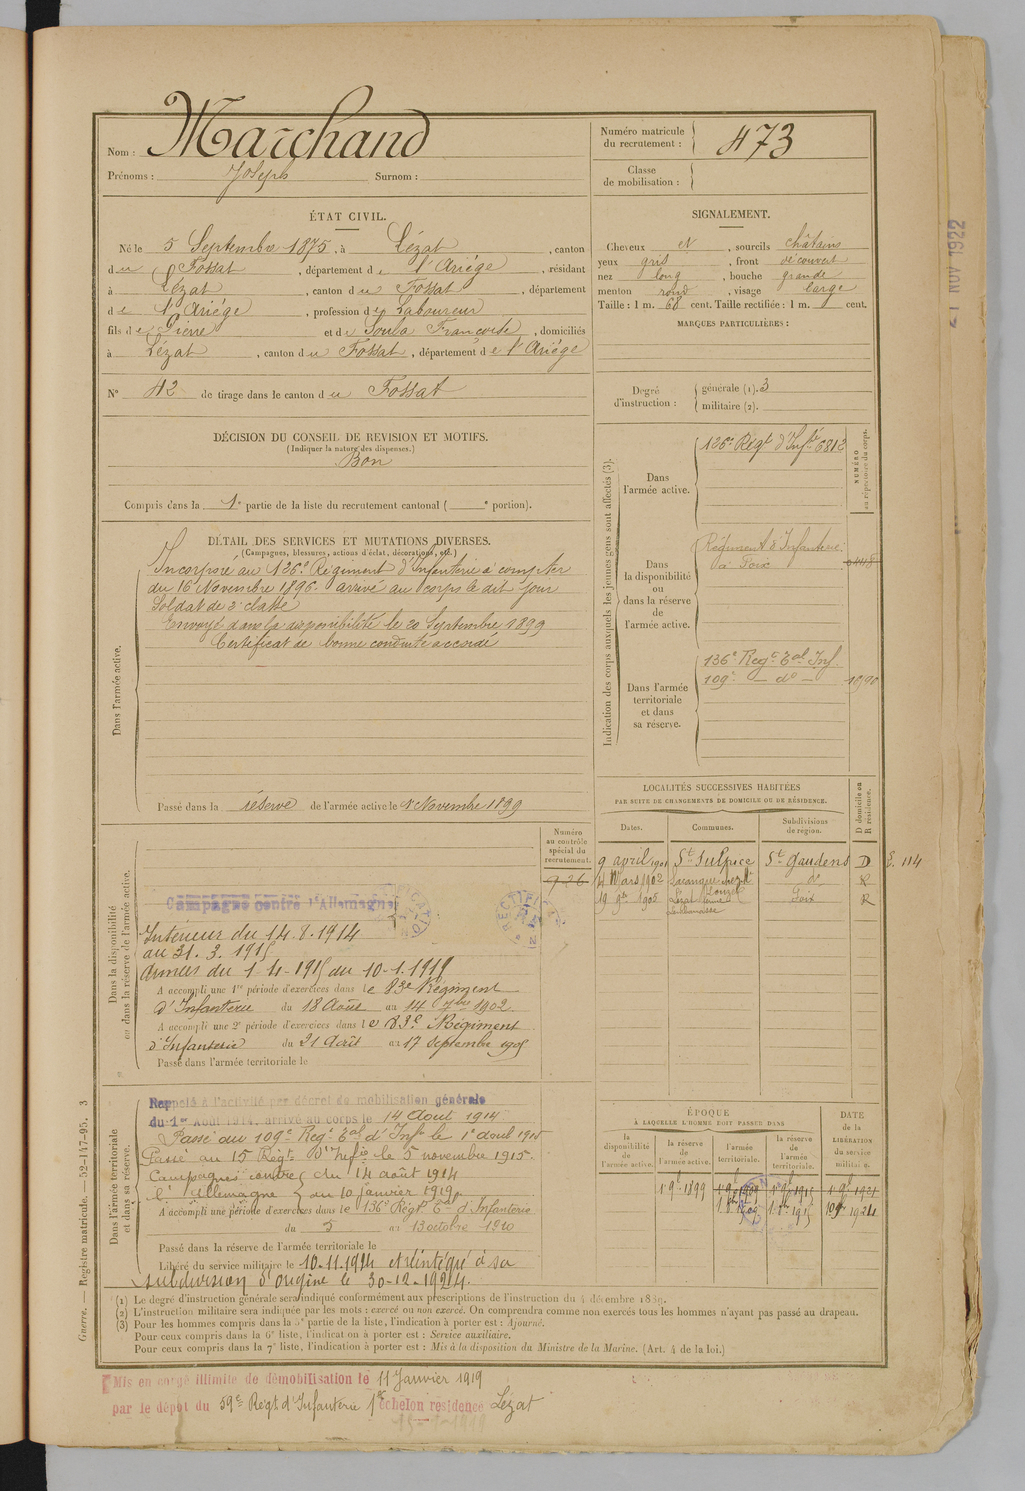 Nom : Marchand
Prénoms : Joseph Surnom :
Numéro matricule du recrutement : 473
Classe de mobilisation :
ÉTAT CIVIL.
Né le 5 Septembre 1875, à Lézat, canton
du Fossat, département de l'Ariége, résidant
à Lézat, canton du Fossat, département
de l'Ariége, profession de Laboureur
fils de Pierre et de Soula Françoise, domiciliés
à Lézat, canton du Fossat, département de l'Ariége
N° 42 de tirage dans le canton du Fossat
SIGNALEMENT.
Cheveux et, sourcils châtains
yeux gris, front découvert
nez long, bouche grande
menton rond, visage large
Taille : 1 m. 68 cent. Taille rectifiée : 1 m. cent.
MARQUES PARTICULIÈRES :
Degré d'instruction : générale (1). 3
militaire (2).
DÉCISION DU CONSEIL DE REVISION ET MOTIFS.
(Indiquer la nature des dispenses.)
Bon
Compris dans la 1e partie de la liste du recrutement cantonal ( e portion).
DÉTAIL DES SERVICES ET MUTATIONS DIVERSES.
(Campagnes, blessures, actions d'éclat, décorations, etc.)
Dans l'armée active.
Incorporé au 126e Régiment d'Infanterie à compter
du 16 Novembre 1896. arrivé au corps le dit jour
Soldat de 2e classe
Envoyé dans la disponibilité le 20 Septembre 1899
Certificat de bonne conduite accordé
Passé dans la réserve de l'armée active le 1 Novembre 1899
Indication des corps auxquels les jeunes gens sont affectés (3).
NUMÉRO au répertoire du corps.
Dans l'armée active.
126e Régt d'Infie 6812
Dans la disponibilité ou dans la réserve de l'armée active.
Régiment d'Infanterie
à Foix
Dans l'armée territoriale et dans sa réserve.
136e Regt Eal Inf
109e — do —
LOCALITÉS SUCCESSIVES HABITÉES
PAR SUITE DE CHANGEMENTS DE DOMICILE OU DE RÉSIDENCE.
Dates. Communes. Subdivisions de région. D domicile ou R résidence.
9 avril 1901 St Sulpice St Gaudens D
14 Mars 1902 do R
19 9bre 1902 Lézat Foix R
Dans la disponibilité ou dans la réserve de l'armée active.
Numéro au contrôle spécial du recrutement.
926
Campagne contre l'Allemagne
RECTIFICATION
Intérieur du 14.8.1914
au 31.3.1915
Armées du 1-4-1915 du 10-1.1919
A accompli une 1re période d'exercices dans le 83e Régiment
d'Infanterie du 18 Août au 14 7bre 1902.
A accompli une 2e période d'exercices dans le 83e Régiment
d'Infanterie du 21 Août au 17 Septembre 1905
Passé dans l'armée territoriale le
Dans l'armée territoriale et dans sa réserve.
Rappelé à l'activité par décret de mobilisation générale
du 1er Août 1914. arrivé au corps le 14 Août 1914.
Passé au 109e Regt Eal d'Infie le 1e avril 1915
Passé au 15 Régt d'Infie le 5 novembre 1915.
Campagnes contre du 14 août 1914
l'Allemagne au 10 janvier 1919
A accompli une période d'exercices dans le 136e Régt Eal d'Infanterie
du 5 au 13 octobre 1910
Passé dans la réserve de l'armée territoriale le
Libéré du service militaire le 10.11.1924 et réintégré à sa
subdivision d'origine le 30-12-1924.
ÉPOQUE
À LAQUELLE L'HOMME DOIT PASSER DANS
la disponibilité de l'armée active. la réserve de l'armée active. l'armée territoriale. la réserve de l'armée territoriale.
DATE de la LIBÉRATION du service militaire.
1 9bre 1899 1 9bre 1909 1 9bre 1915 1 9bre 1921
(1) Le degré d'instruction générale sera indiqué conformément aux prescriptions de l'instruction du 4 décembre 1889.
(2) L'instruction militaire sera indiquée par les mots : exercé ou non exercé. On comprendra comme non exercés tous les hommes n'ayant pas passé au drapeau.
(3) Pour les hommes compris dans la 5e partie de la liste, l'indication à porter est : Ajourné.
Pour ceux compris dans la 6e liste, l'indication à porter est : Service auxiliaire.
Pour ceux compris dans la 7e liste, l'indication à porter est : Mis à la disposition du Ministre de la Marine. (Art. 4 de la loi.)
Guerre. — Registre matricule. — 52-147-95. 3
Mis en congé illimité de démobilisation le 11 Janvier 1919
par le dépôt du 59e Régt d'Infanterie 1er échelon résidence Lézat
21 NOV 1922